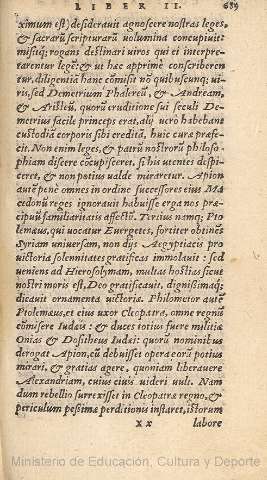 LIBER II. 689
ximum est) desiderauit agnoscere nostras leges,
& sacrarũ scripturarũ uolumina concupiuit:
misitq; rogans destinari uiros qui ei interpre
rarentur legẽ: & ut hæc apprime conscriberen
tur, diligentiã hanc cõmisit nõ quibuscunq; ui-
ris, sed Demetrium Phalereũ, & Andream,
& Aristeũ, quorũ eruditione sui seculi Deme-
trius facile princeps erat, alij uero habebant
custodiã corporis sibi creditã, huic curæ præfe-
cit. Non enim leges, & patrũ nostrorũ philoso-
phiam discere cõcupisceret, si his utentes despi-
ceret, & non potius ualde miraretur. Apion
autẽ penè omnes in ordine successores eius Ma
cedonũ reges ignorauit habuisse erga nos præ-
cipuũ familiaritatis affectũ. Tertius namq; Pto
lemæus, qui uocatur Euergetes, fortiter obtinẽs
Syriam uniuersam, non dijs Aegyptiacis pro
uictoria solennitates gratificas immolauit: sed
ueniens ad Hierosolymam, multas hostias sicut
nostri moris est, Deo gratificauit, dignissimaq;
dicauit ornamenta uictoria. Philometor autẽ
Ptolemæus, et eius uxor Cleopatra, omne regnũ
cõmisere Iudæis: & duces totius fuere militiæ
Onias & Dositheus Iudæi: quorũ nominibus
derogat Apion, cũ debuisset opera eorũ potius
mirari, & gratias agere, quoniam liberauere
Alexandriam, cuius ciuis uideri uult. Nam
dum rebellio surrexisset in Cleopatræ regno, &
periculum pessimæ perditionis instaret, istorum
X x labore
Ministerio de Educación, Cultura y Deporte